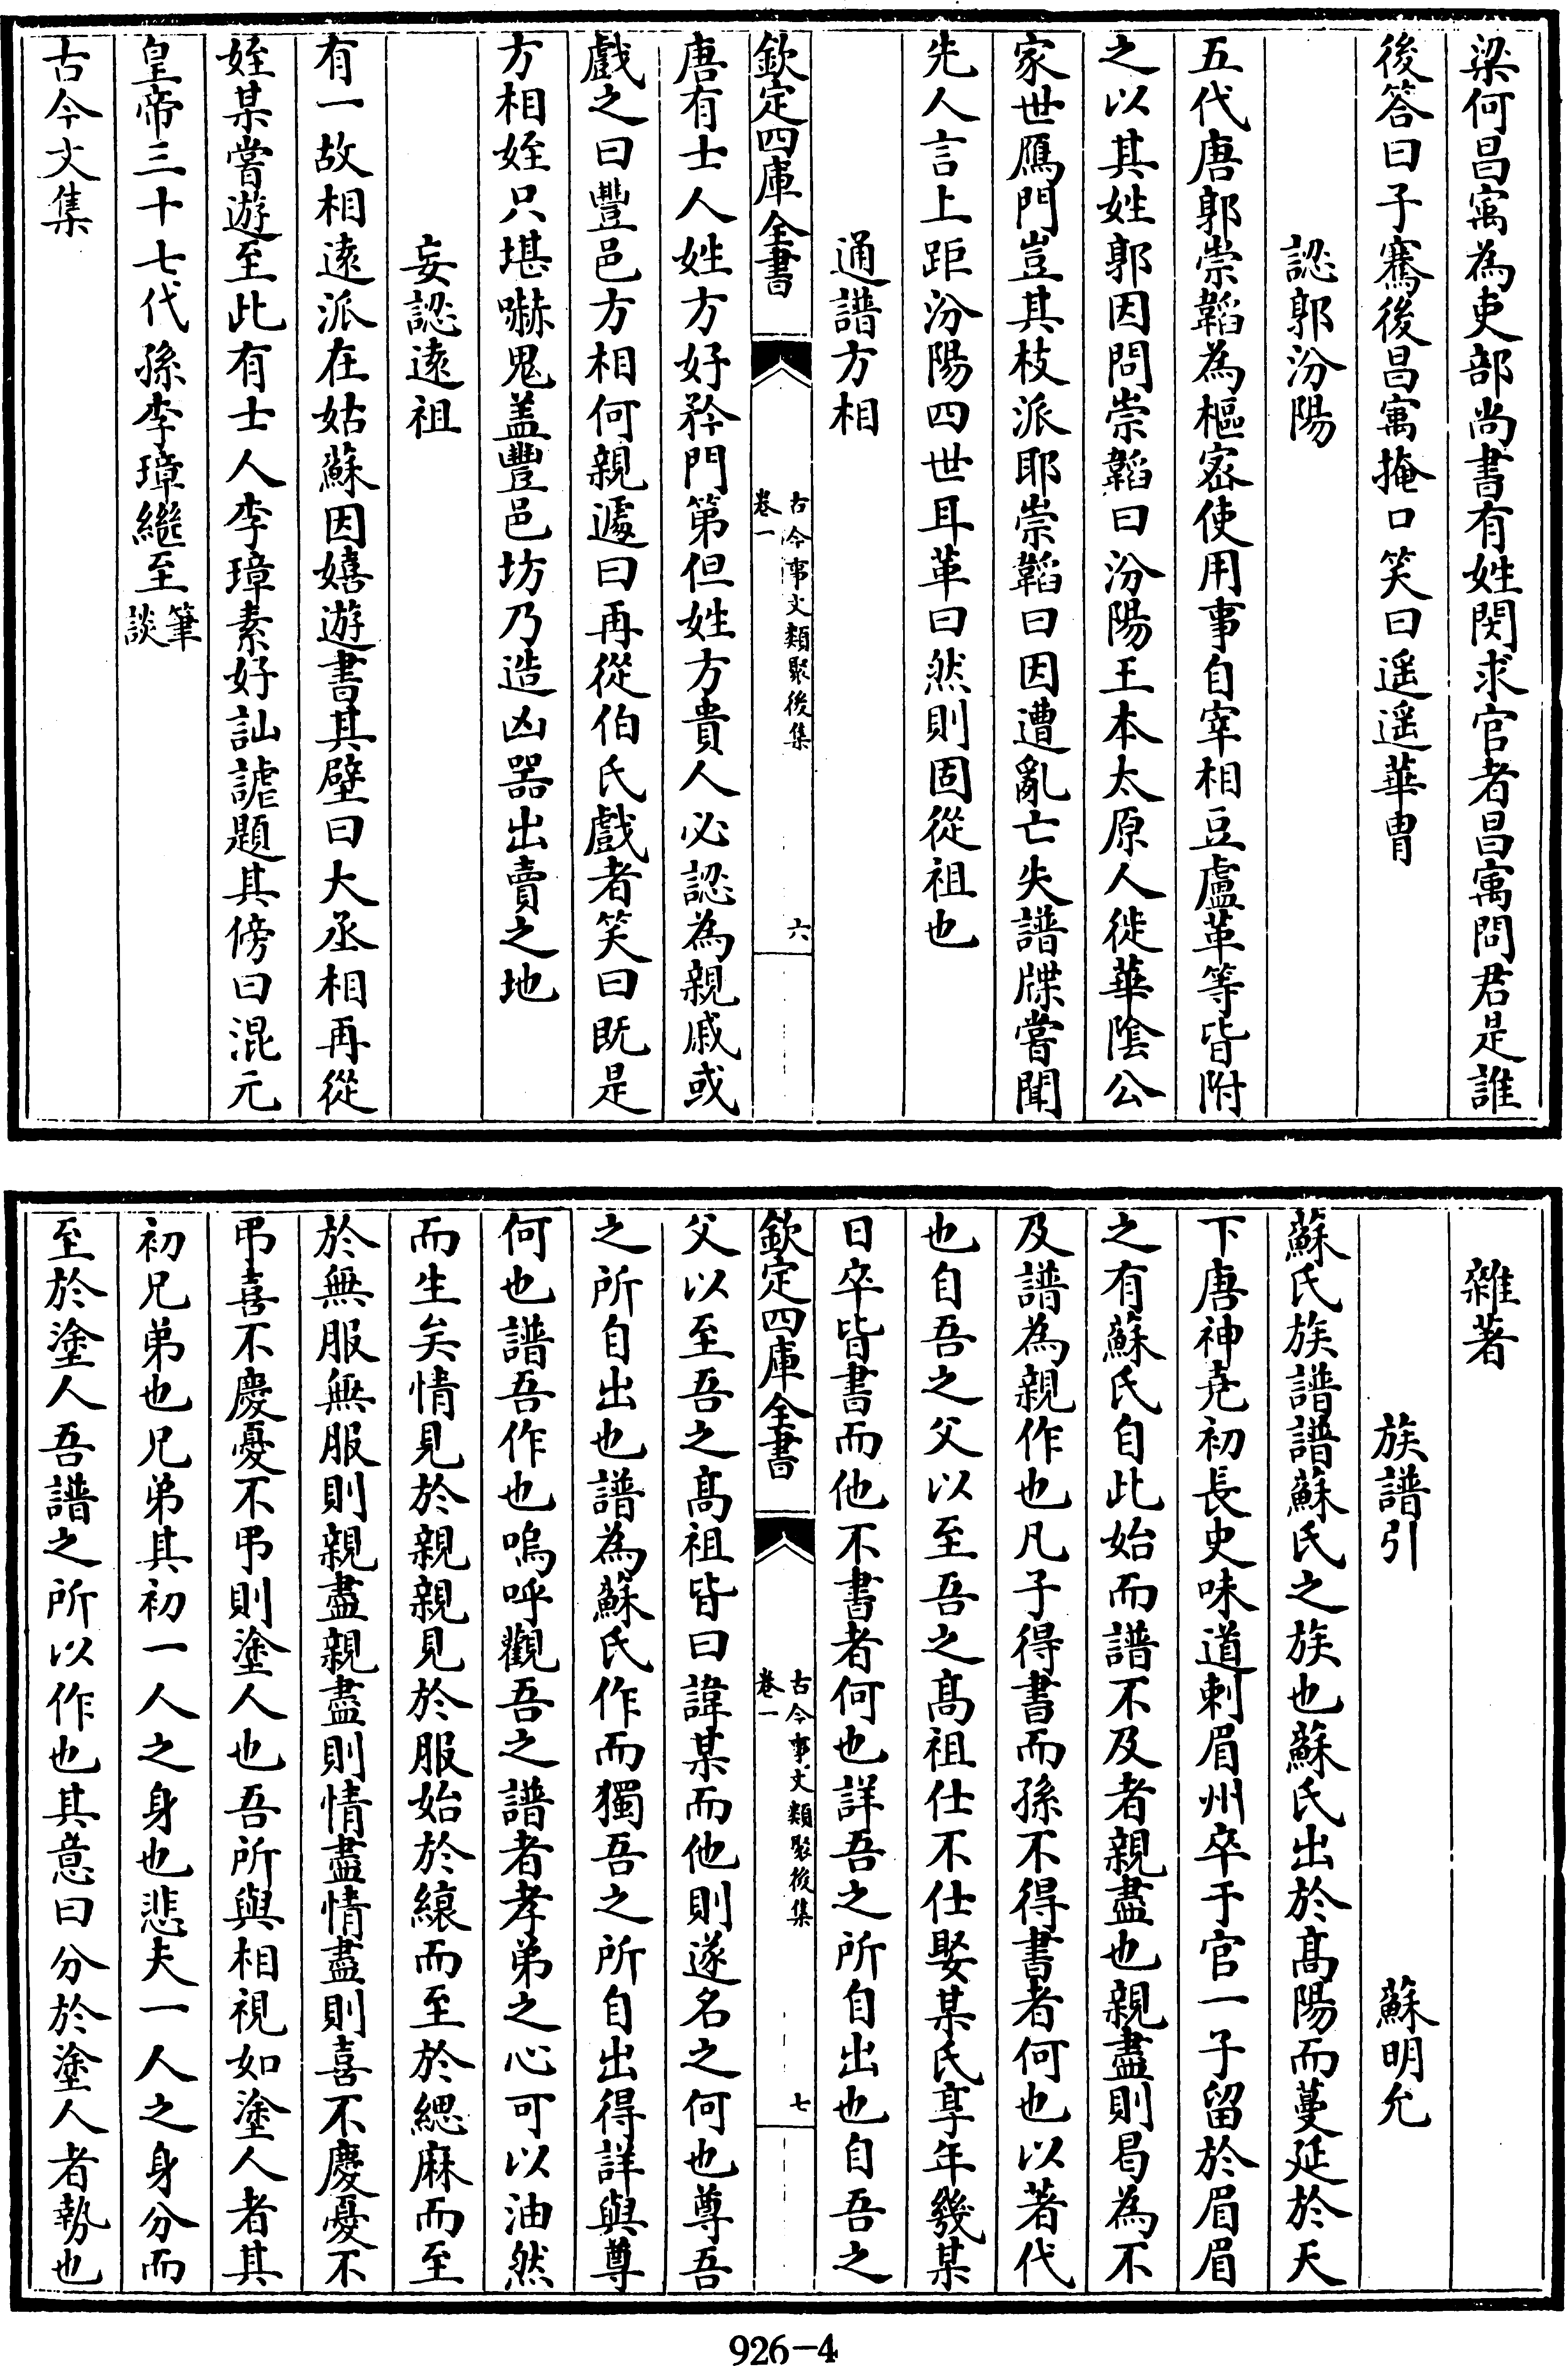 梁何昌㝢為吏部尚書有姓閔求官者昌㝢問君是誰
後答曰子騫後昌㝢掩口笑曰遥遥華胄
認郭汾陽
五代唐郭崇韜為樞宻使用事自宰相豆盧革等皆附
之以其姓郭因問崇韜曰汾陽王本太原人徙華隂公
家世鴈門豈其枝派耶崇韜曰因遭亂亡失譜牒嘗聞
先人言上距汾陽四世耳革曰然則固從祖也
通譜方相
欽定四庫全書
古今事文類聚後集
卷一
六
唐有士人姓方好矜門第但姓方貴人必認為親戚或
戲之曰豐邑方相何親遽曰再從伯氏戲者笑曰既是
方相姪只堪嚇鬼盖豐邑坊乃造凶器出賣之地
妄認逺祖
有一故相逺派在姑蘇因嬉遊書其壁曰大丞相再從
姪某嘗遊至此有士人李璋素好訕謔題其傍曰混元
皇帝三十七代孫李璋繼至筆談
古今文集
雜著
族譜引
蘇明允
蘇氏族譜譜蘇氏之族也蘇氏出於髙陽而蔓延於天
下唐神尭初長史味道刺眉州卒于官一子留於眉眉
之有蘇氏自此始而譜不及者親盡也親盡則曷為不
及譜為親作也凡子得書而孫不得書者何也以著代
也自吾之父以至吾之髙祖仕不仕娶某氏享年幾某
日卒皆書而他不書者何也詳吾之所自出也自吾之
欽定四庫全書
古今事文類聚後集
卷一
七
父以至吾之髙祖皆曰諱某而他則遂名之何也尊吾
之所自出也譜為蘇氏作而獨吾之所自出得詳與尊
何也譜吾作也嗚呼觀吾之譜者孝弟之心可以油然
而生矣情見於親親見於服始於縗而至於緦麻而至
於無服無服則親盡親盡則情盡情盡則喜不慶憂不
弔喜不慶憂不弔則塗人也吾所與相視如塗人者其
初兄弟也兄弟其初一人之身也悲夫一人之身分而
至於塗人吾譜之所以作也其意曰分於塗人者勢也
926-4